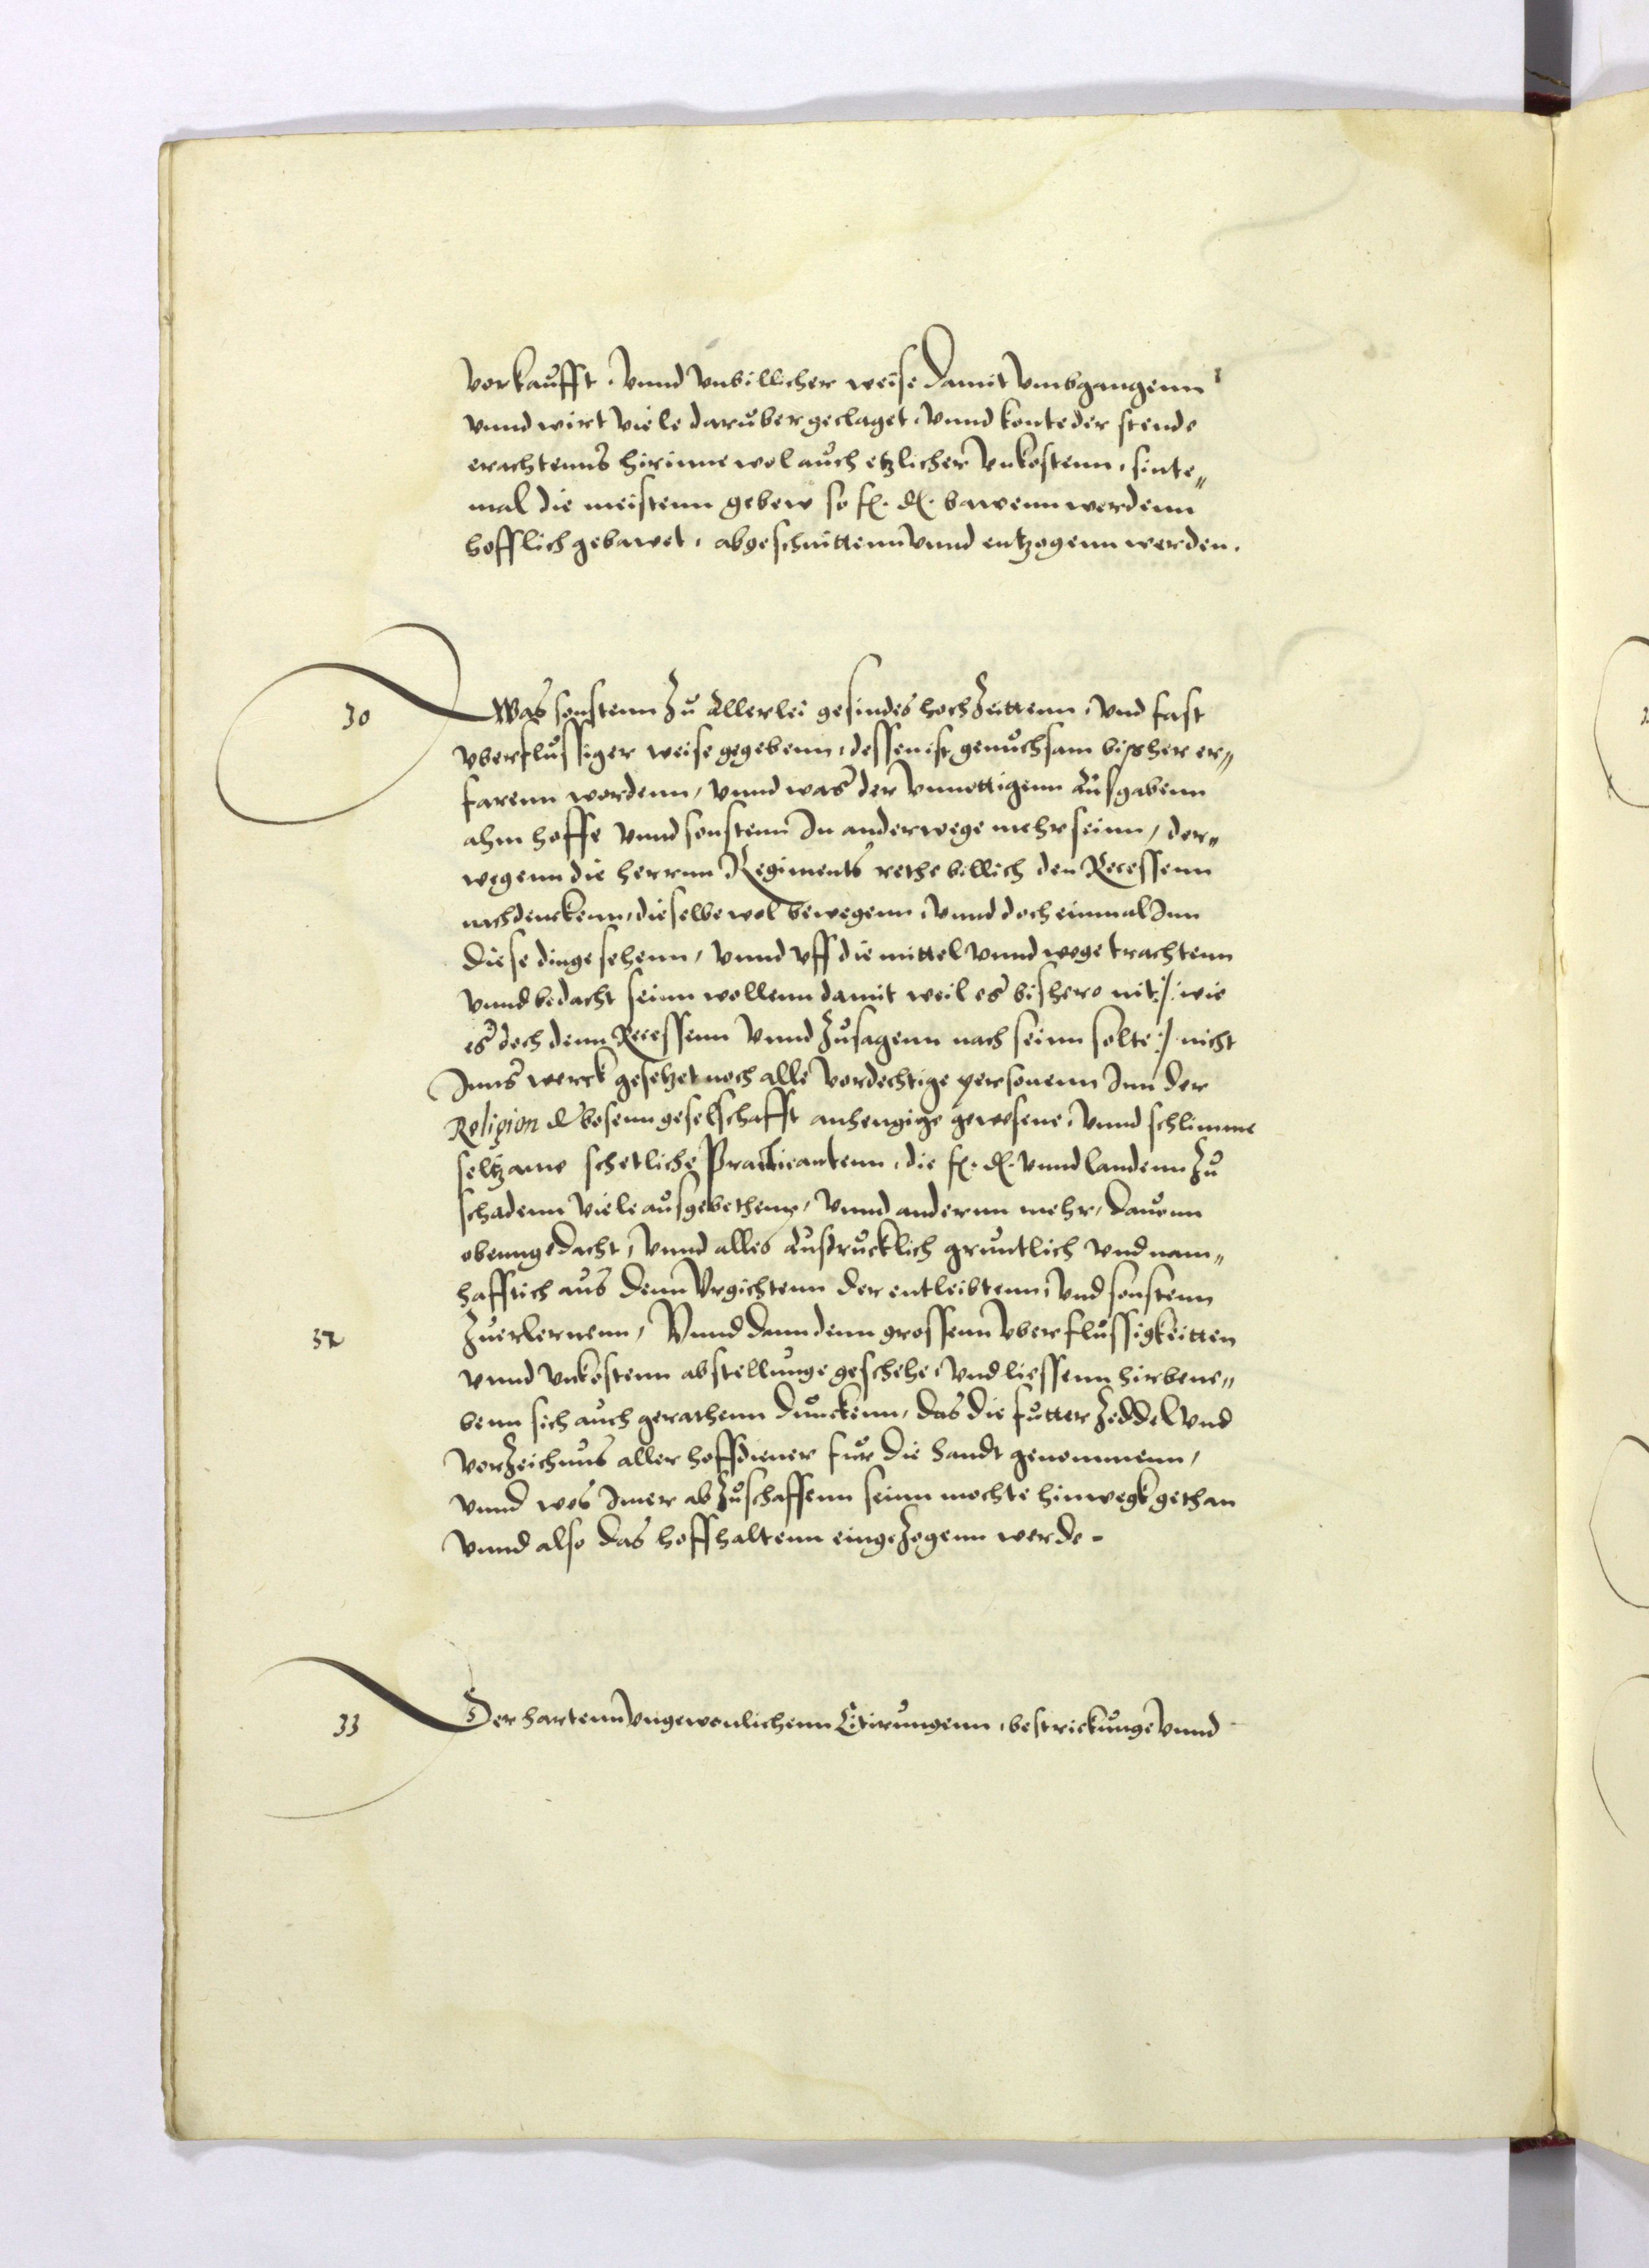 vorkaufft, vnnd vnbillicher weise damit vmbgangenn
vnnd wirt viele daruber geclaget, vnnd konte der stende
erachtenns hirinne wol auch etzlicher vnkostenn, sinte„
mal die meistenn gebew so f. d. bawenn werdenn
hofflich gebawet, abgeschnittenn vnnd entzogenn werden.
30 Was sonstenn zu Allerlei gesindes hochzeittenn, vnd fast
vberflussiger weise gegebenn, dessen ist genuchsam bissher er„
farenn wordenn, vnnd was der vnnottigenn Ausgabenn
ahm hoffe vnnd sonstenn In anderwege mehr seinn, der„
wegenn die herrnn Regiments rethe billich den Recessenn
nachdenckenn, dieselbe wol bewegenn, vnnd doch einmal Inn
diese dinge sehenn, vnnd vff die mittel vnnd wege trachtenn
vnnd bedacht seinn wollenn damit weil es bishero nit :/: wie
es doch denn Recessenn vnnd zusagenn nach seinn solte :/: nicht
Inns werck gesetzet noch alle vordechtige personenn Inn der
Religion & bosenn geselschafft anhengige gewesene, vnnd schlimme
seltzame schetliche Practicantenn, die f. d. vnnd landenn zu
schadenn viele ausgebethenn, vnnd andernn mehr, dauonn
obenngedacht, vnnd alles Ausdrucklich gruntlich vnd nam„
hafftich aus denn Vrgichtenn der entleibtenn, vnd sonstenn
32 zuerlernenn, Vnnd dann denn grossenn vberflussigkeitten
vnnd vnkostenn abstellunge geschehe, vnd liessenn hirbene„
benn sich auch gerathenn dunckenn, das die futter zeddel vnd
vorzeichnus aller hoffdiener fur die handt genommenn,
vnnd wes Imer abzuschaffenn seinn mochte hinwegk gethan
vnnd also das hoffhaltenn eingezogenn werde.
33 Der hartenn vngewonlichenn Citirungenn, bestrickunge vnnd